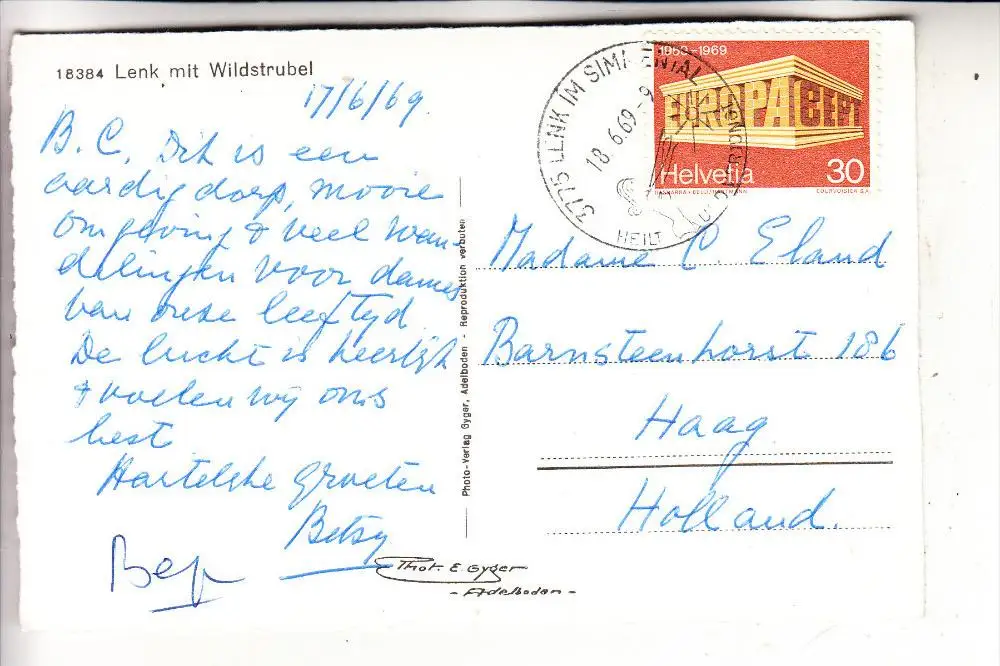 18384 Lenk mit Wildstrubel
17/6/69
B.C. Dit is een
aardig dorp, mooie
omgeving & veel wan-
delingen voor dames
van onze leeftyd
De lucht is heerlijk
& voelen wij ons
best
Hartelyke groeten
Betsy
Bep
Photo-Verlag Gyger, Adelboden - Reproduktion verboten
Phot. E. Gyger
- Adelboden -
3775 LENK IM SIMMENTAL
18.6.69-9
HEILT
1959-1969
EUROPA CEPT
Helvetia 30
COURVOISIER S.A.
Madame C. Eland
Barnsteenhorst 186
Haag
Holland.